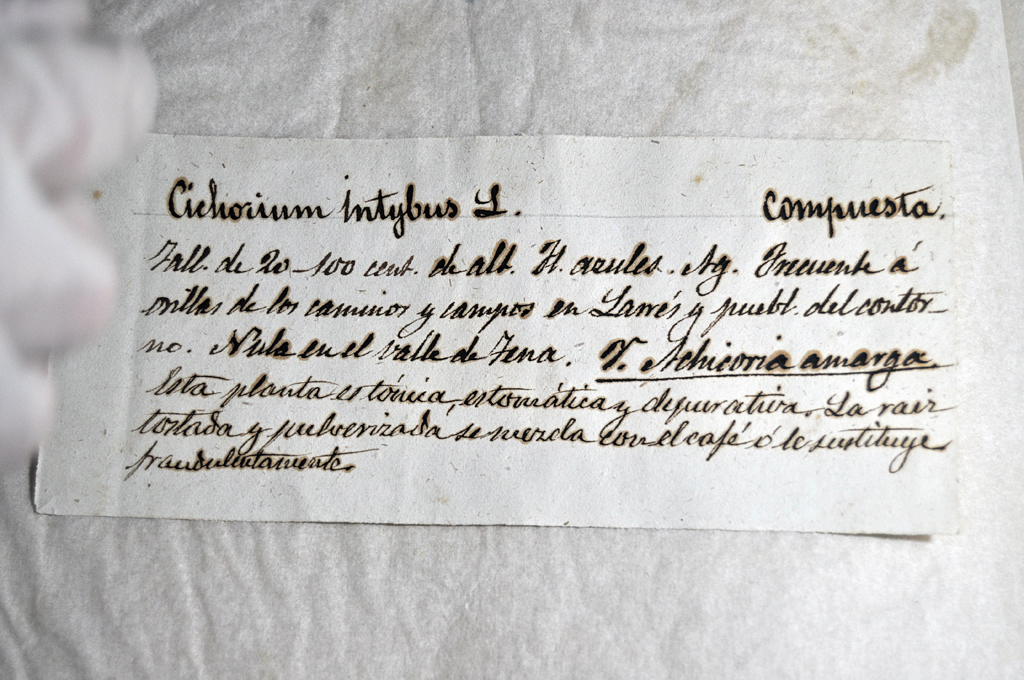 Cichorium Intybus L. Compuesta.
Tall. de 20-100 cent. de alt. Fl. azules. Ag. Frecuente á
orillas de los caminos y campos en Larrés y puebl. del contor-
no. Nula en el valle de Tena. V. Achicoria amarga.
Esta planta es tónica, estomática y depurativa. La raiz
tostada y pulverizada se mezcla con el café ó le sustituye
fraudulentamente.